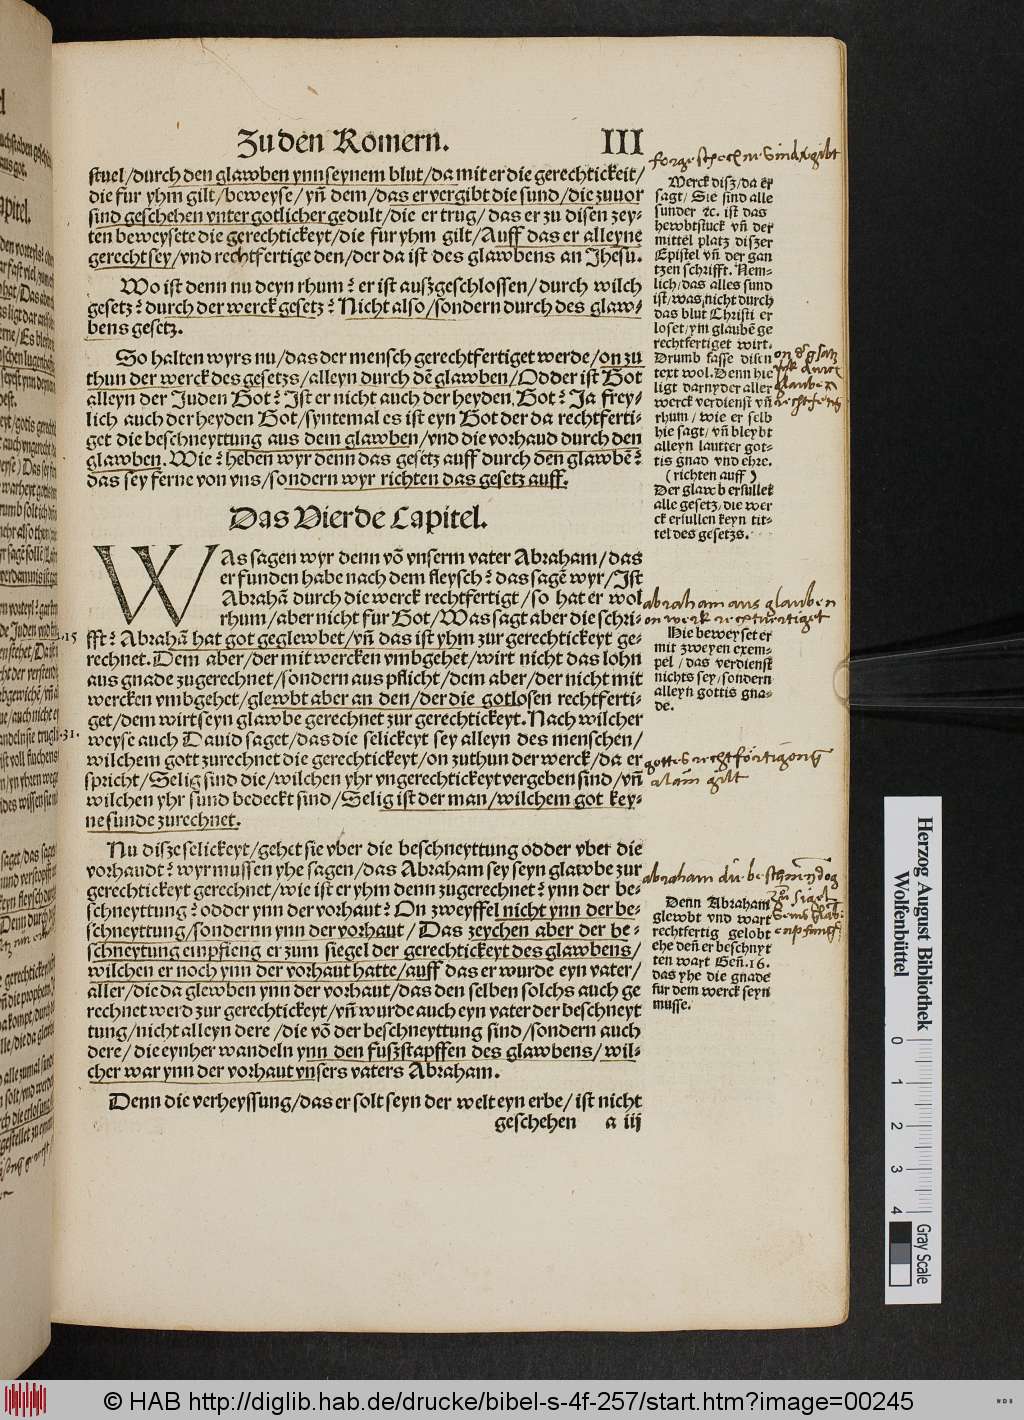 Zu den Romern. III
stuel/durch den glawben ynn seynem blut/da mit er die gerechtickeit/
die fur yhm gilt/beweyse/yñ dem/das er vergibt die sund/die zuuor
sind geschehen vnter gotlicher gedult/die er trug/das er zu disen zey-
ten beweysete die gerechtickeyt/die fur yhm gilt/Auff das er alleyne
gerecht sey/vnd rechtfertige den/der da ist des glawbens an Jhesu.
Wo ist denn nu deyn rhum? er ist auszgeschlossen/durch wilch
gesetz? durch der werck gesetz? Nicht also/sondern durch des glaw-
bens gesetz.
So halten wyrs nu/das der mensch gerechtfertiget werde/on zu
thun der werck des gesetzs/alleyn durch dē glawben/Odder ist Got
alleyn der Juden Got? Ist er nicht auch der heyden Got? Ja frey-
lich auch der heyden Got/syntemal es ist eyn Got der da rechtferti-
get die beschneyttung aus dem glawben/vnd die vorhaud durch den
glawben. Wie? heben wyr denn das gesetz auff durch den glawbē?
das sey ferne von vns/sondern wyr richten das gesetz auff.
Das Vierde Capitel.
WAs sagen wyr denn võ vnserm vater Abraham/das
er funden habe nach dem fleysch? das sagē wyr/Ist
Abrahã durch die werck rechtfertigt/so hat er wol
rhum/aber nicht fur Got/Was sagt aber die schri-
fft? Abrahã hat got geglewbet/vñ das ist yhm zur gerechtickeyt ge-
rechnet. Dem aber/der mit wercken vmbgehet/wirt nicht das lohn
aus gnade zugerechnet/sondern aus pflicht/dem aber/der nicht mit
wercken vmbgehet/glewbt aber an den/der die gotlosen rechtferti-
get/dem wirt seyn glawbe gerechnet zur gerechtickeyt. Nach wilcher
weyse auch Dauid saget/das die selickeyt sey alleyn des menschen/
wilchem gott zurechnet die gerechtickeyt/on zuthun der werck/da er
spricht/Selig sind die/wilchen yhr vngerechtickeyt vergeben sind/vñ
wilchen yhr sund bedeckt sind/Selig ist der man/wilchem got key-
ne sunde zurechnet.
Nu disze selickeyt/gehet sie vber die beschneyttung odder vber die
vorhaudt? wyr mussen yhe sagen/das Abraham sey seyn glawbe zur
gerechtickeyt gerechnet/wie ist er yhm denn zugerechnet? ynn der be-
schneyttung? odder ynn der vorhaut? On zweyffel nicht ynn der be-
schneyttung/sondernn ynn der vorhaut/Das zeychen aber der be-
schneytung empfieng er zum siegel der gerechtickeyt des glawbens/
wilchen er noch ynn der vorhaut hatte/auff das er wurde eyn vater/
aller/die da glewben ynn der vorhaut/das den selben solchs auch ge
rechnet werd zur gerechtickeyt/vñ wurde auch eyn vater der beschneyt
tung/nicht alleyn dere/die võ der beschneyttung sind/sondern auch
dere/die eynher wandeln ynn den fuszstapffen des glawbens/wil-
cher war ynn der vorhaut vnsers vaters Abraham.
Denn die verheyssung/das er solt seyn der welt eyn erbe/ist nicht
geschehen a iij
Merck disz/da er
sagt/Sie sind alle
sunder ꝛc. ist das
hewbtstuck vñ der
mittel platz diszer
Epistel vñ der gan
tzen schrifft. Nem-
lich/das alles sund
ist/was nicht durch
das blut Christi er
loset/ym glaubē ge
rechtfertiget wirt.
Drumb fasse disen
text wol. Denn hie
ligt darnyder aller
werck verdienst vñ
rhum/wie er selb
hie sagt/vñ bleybt
alleyn lautter got-
tis gnad vnd ehre.
(richten auff)
Der glawb erfullet
alle gesetz/die wer
ck erfullen keyn tit-
tel des gesetzs.
abraham aus glauben
on werk rechtvertiget
Hie beweyset er
mit zweyen exem-
pel/das verdienst
nichts sey/sondern
alleyn gottis gna-
de.
15
31.
Denn Abraham
glewbt vnd wart
rechtfertig gelobt
ehe deñ er beschnyt
ten wart Geñ.16.
das yhe die gnade
fur dem werck seyn
musse.
Herzog August Bibliothek
Wolfenbüttel
0 1 2 3 4
Gray Scale
© HAB http://diglib.hab.de/drucke/bibel-s-4f-257/start.htm?image=00245